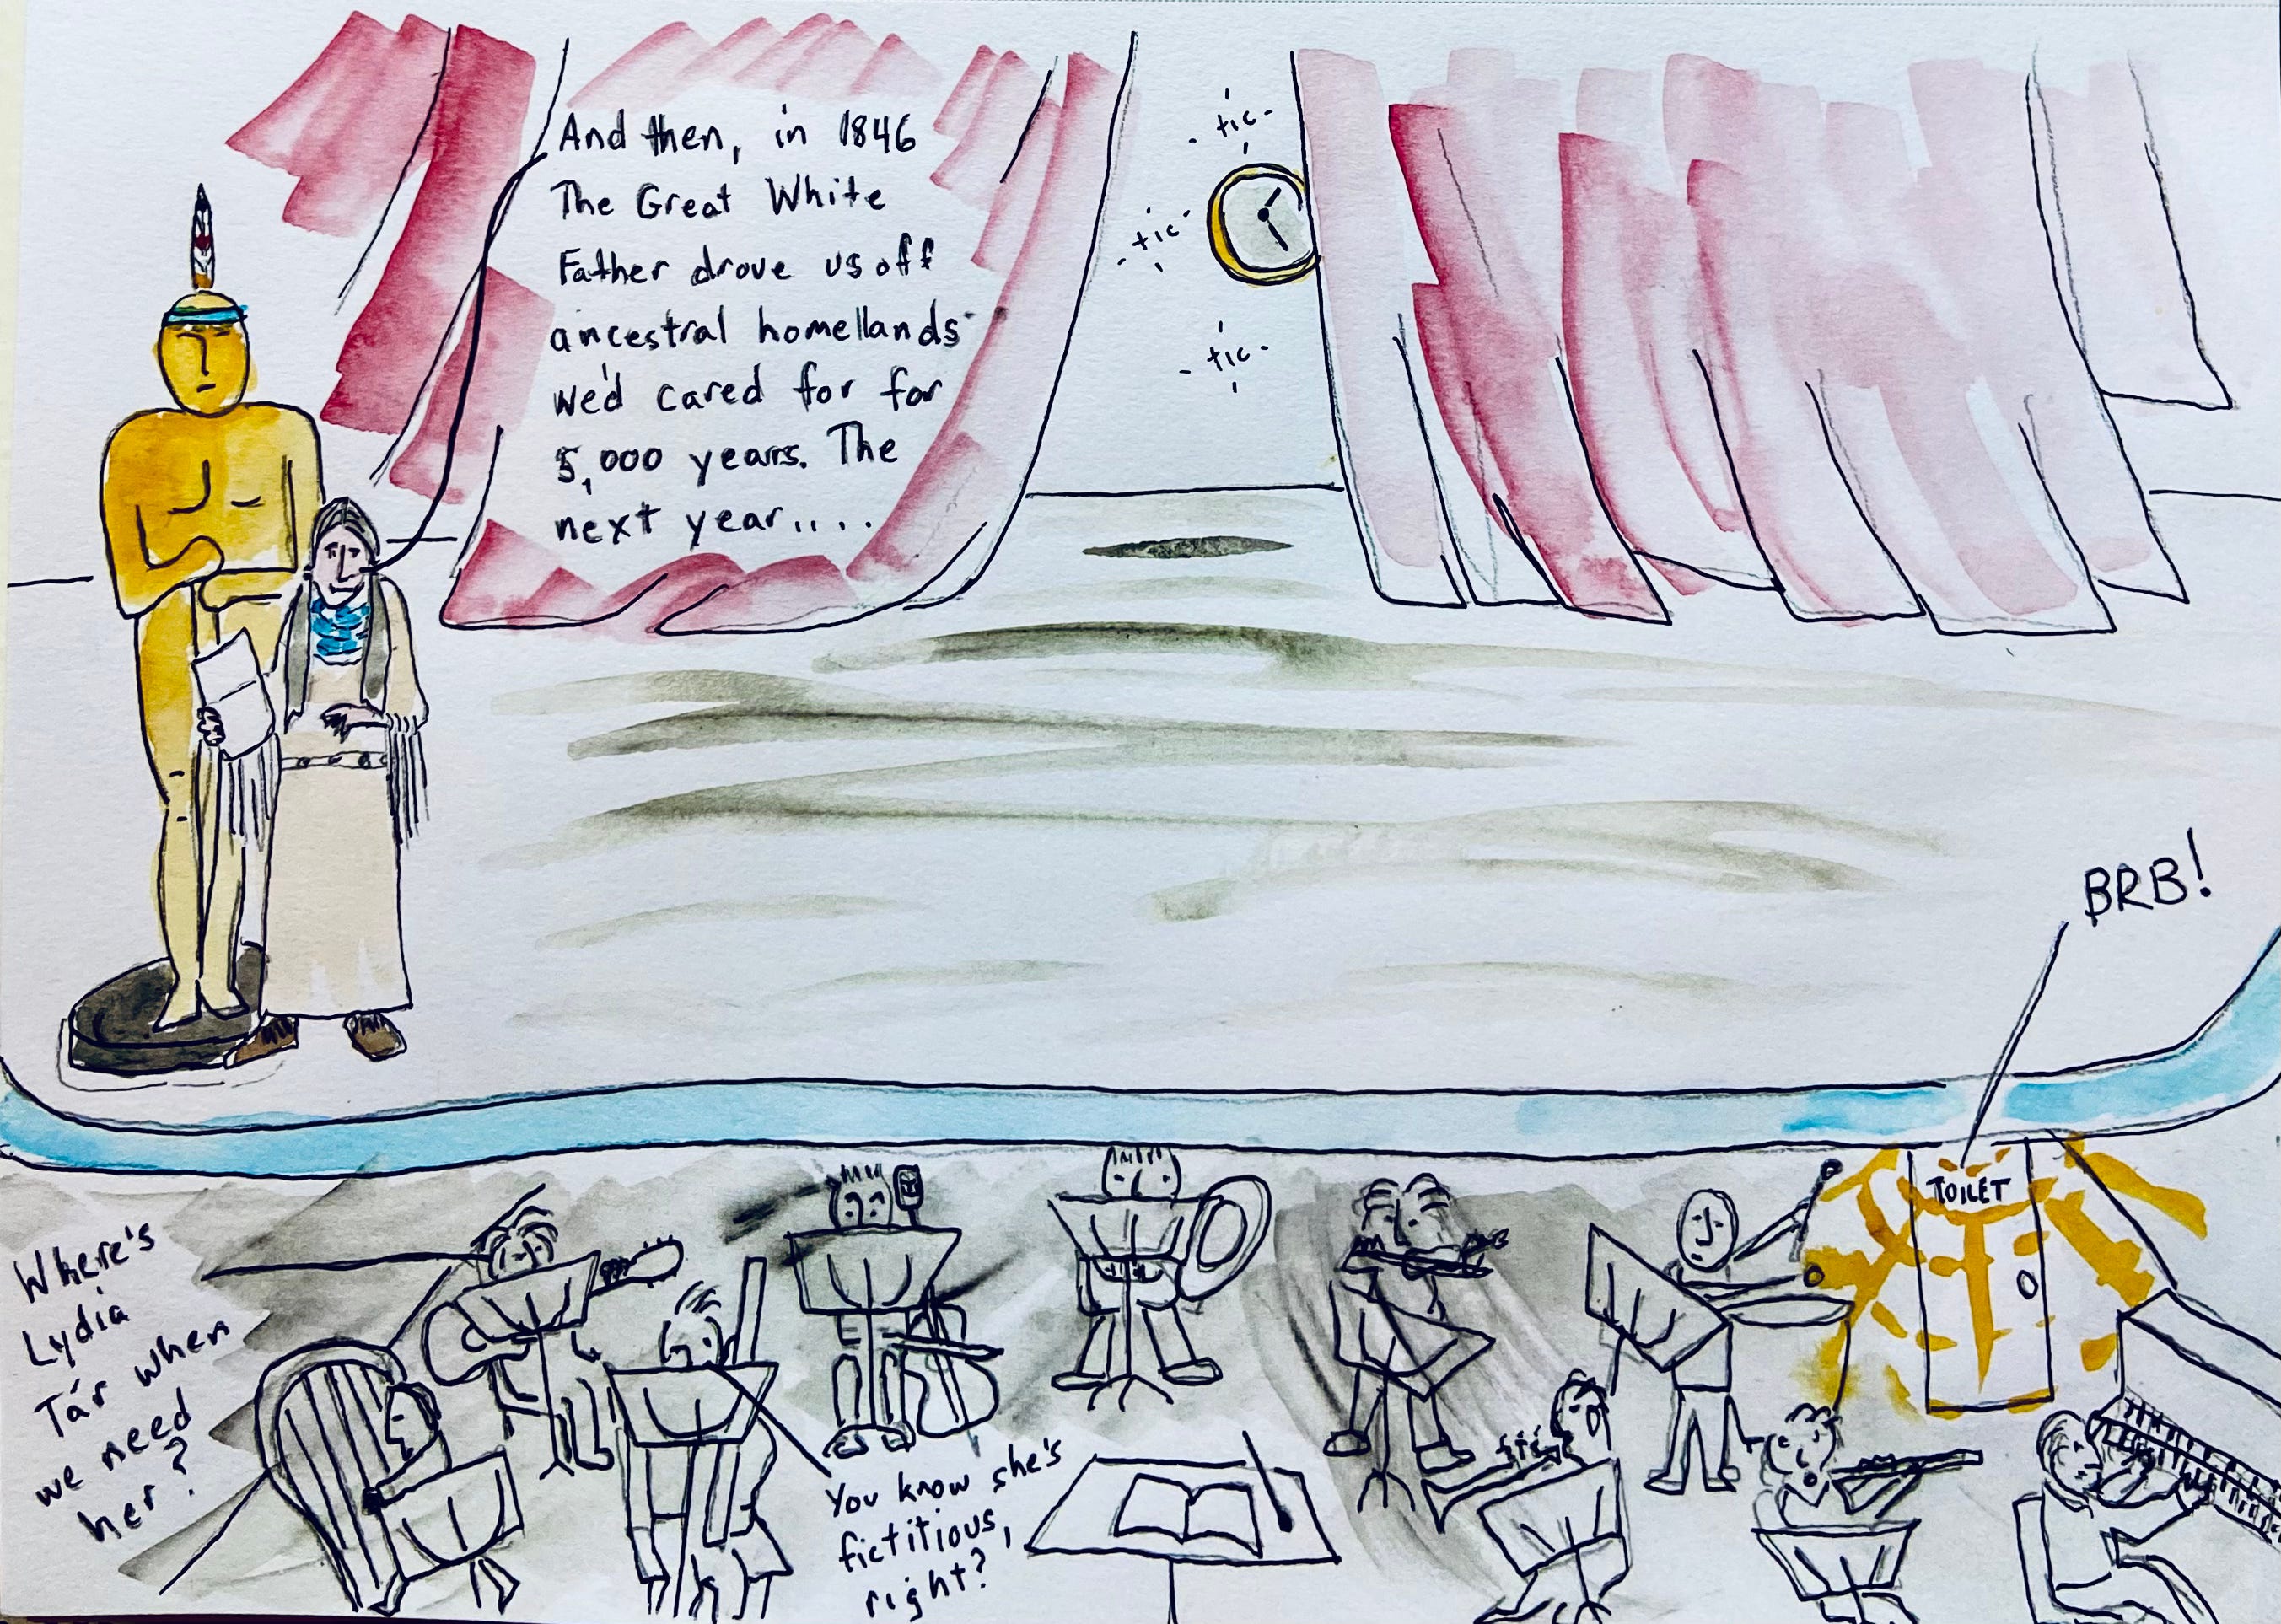 And then, in 1846
The Great White
Father drove us off
ancestral homellands
we'd cared for for
5,000 years. The
next year.....
-tic-
-tic-
-tic-
BRB!
TOILET
Where's
Lydia
Tár when
we need
her?
You know she's
fictitious,
right?